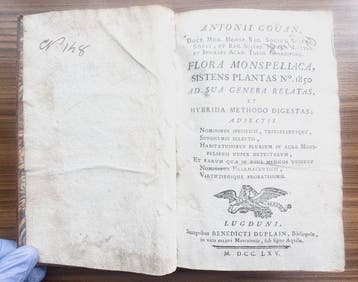 Nº. 148
ANTONII GOÜAN,
DOCT. MED. MONSP. REG. SOCIET.
ET REG. SCIENT.
ET ACAD. TOLOS.
FLORA MONSPELIACA,
SISTENS PLANTAS Nº. 1850
AD SUA GENERA RELATAS,
ET
HYBRIDA METHODO DIGESTAS;
ADJECTIS
NOMINIBUS SPECIFICIS, TRIVIALIBUSQUE,
SYNONYMIS SELECTIS,
HABITATIONIBUS PLURIUM IN AGRO MONS-
PELIENSI NUPER DETECTARUM,
ET EARUM QUÆ IN USUS MEDICOS VENIUNT
NOMINIBUS PHARMACEUTICIS,
VIRTUTIBUSQUE PROBATISSIMIS.
LUGDUNI,
Sumptibus BENEDICTI DUPLAIN, Bibliopolæ,
in vico majori Mercatorio, sub signo Aquilæ.
M. DCC. LXV.